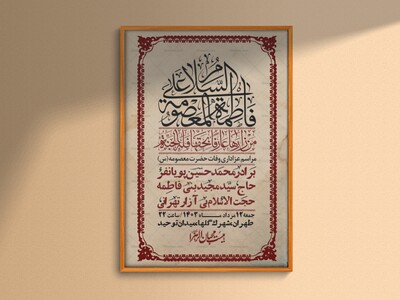 السلام علی
فاطمة المعصومة
من زارها عارفا بحقها فله الجنة
مراسم عزاداری وفات حضرت معصومه (س)
برادر محمدحسین پویانفر
حاج سید مجید بنی فاطمه
حجت الاسلام بی آزار تهرانی
جمعه ۱۲ مرداد ماه ۱۴۰۳ / ساعت ۲۲
طهران، شهرک گلها، میدان توحید